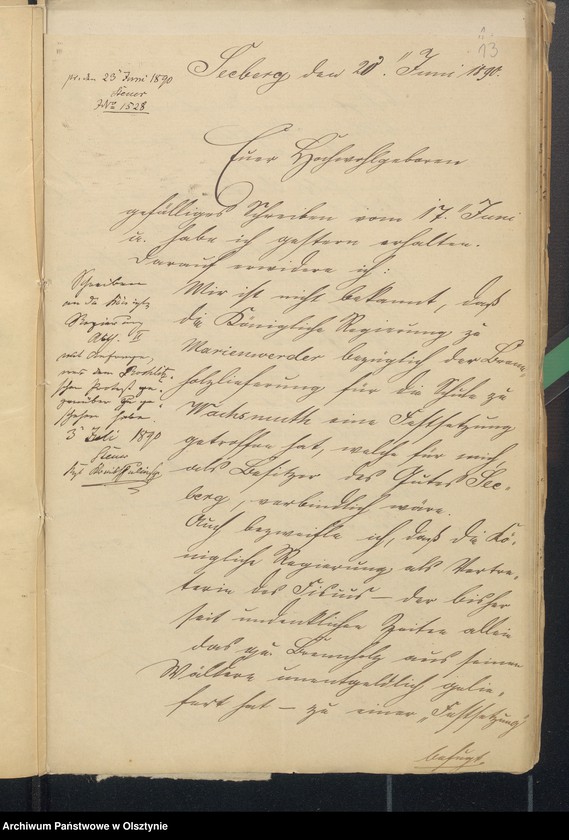 13
pr. den 23 Juni 1890
Steuer
J.№ 1528
Seeberg den 20. Juni 1890.
Euer Hochwohlgeboren
gefälliges Schreiben vom 17. Juni
u. habe ich gestern erhalten.
Darauf erwidere ich:
Mir ist nicht bekannt, daß
die Königliche Regierung zu
Marienwerder bezüglich der Brenn-
holzlieferung für die Schule zu
Wachsmuth eine Festsetzung
getroffen hat, welche für mich
als Besitzer des Gutes See-
berg, verbindlich wäre.
Auch bezweifle ich, daß die Kö-
nigliche Regierung als Vertre-
terin des Fiscus – der bisher
seit undenklichen Zeiten allein
das qu. Brennholz aus seinen
Wäldern unentgeldlich gelie-
fert hat – zu einer „Festsetzung"
befugt,
Schreiben
an die Königl.
Regierung
Abth. II
mit Anfrage,
was dem
gegenüber zu ge-
schehen habe.
3 Juli 1890
Steuer
Archiwum Państwowe w Olsztynie